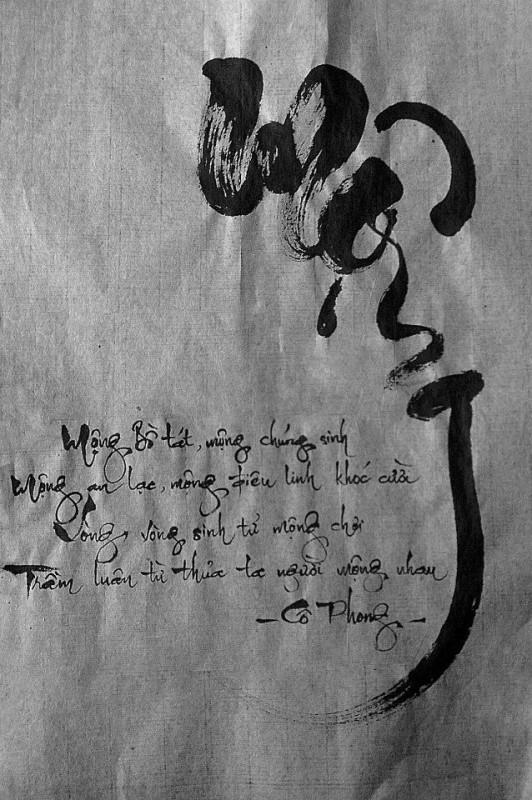 Mộng
Mộng Bồ tát, mộng chúng sinh
Mộng an lạc, mộng điêu linh khóc cười
Vòng vòng sinh tử mộng chơi
Trầm luân từ thủa ta người mộng nhau
- Cô Phong -